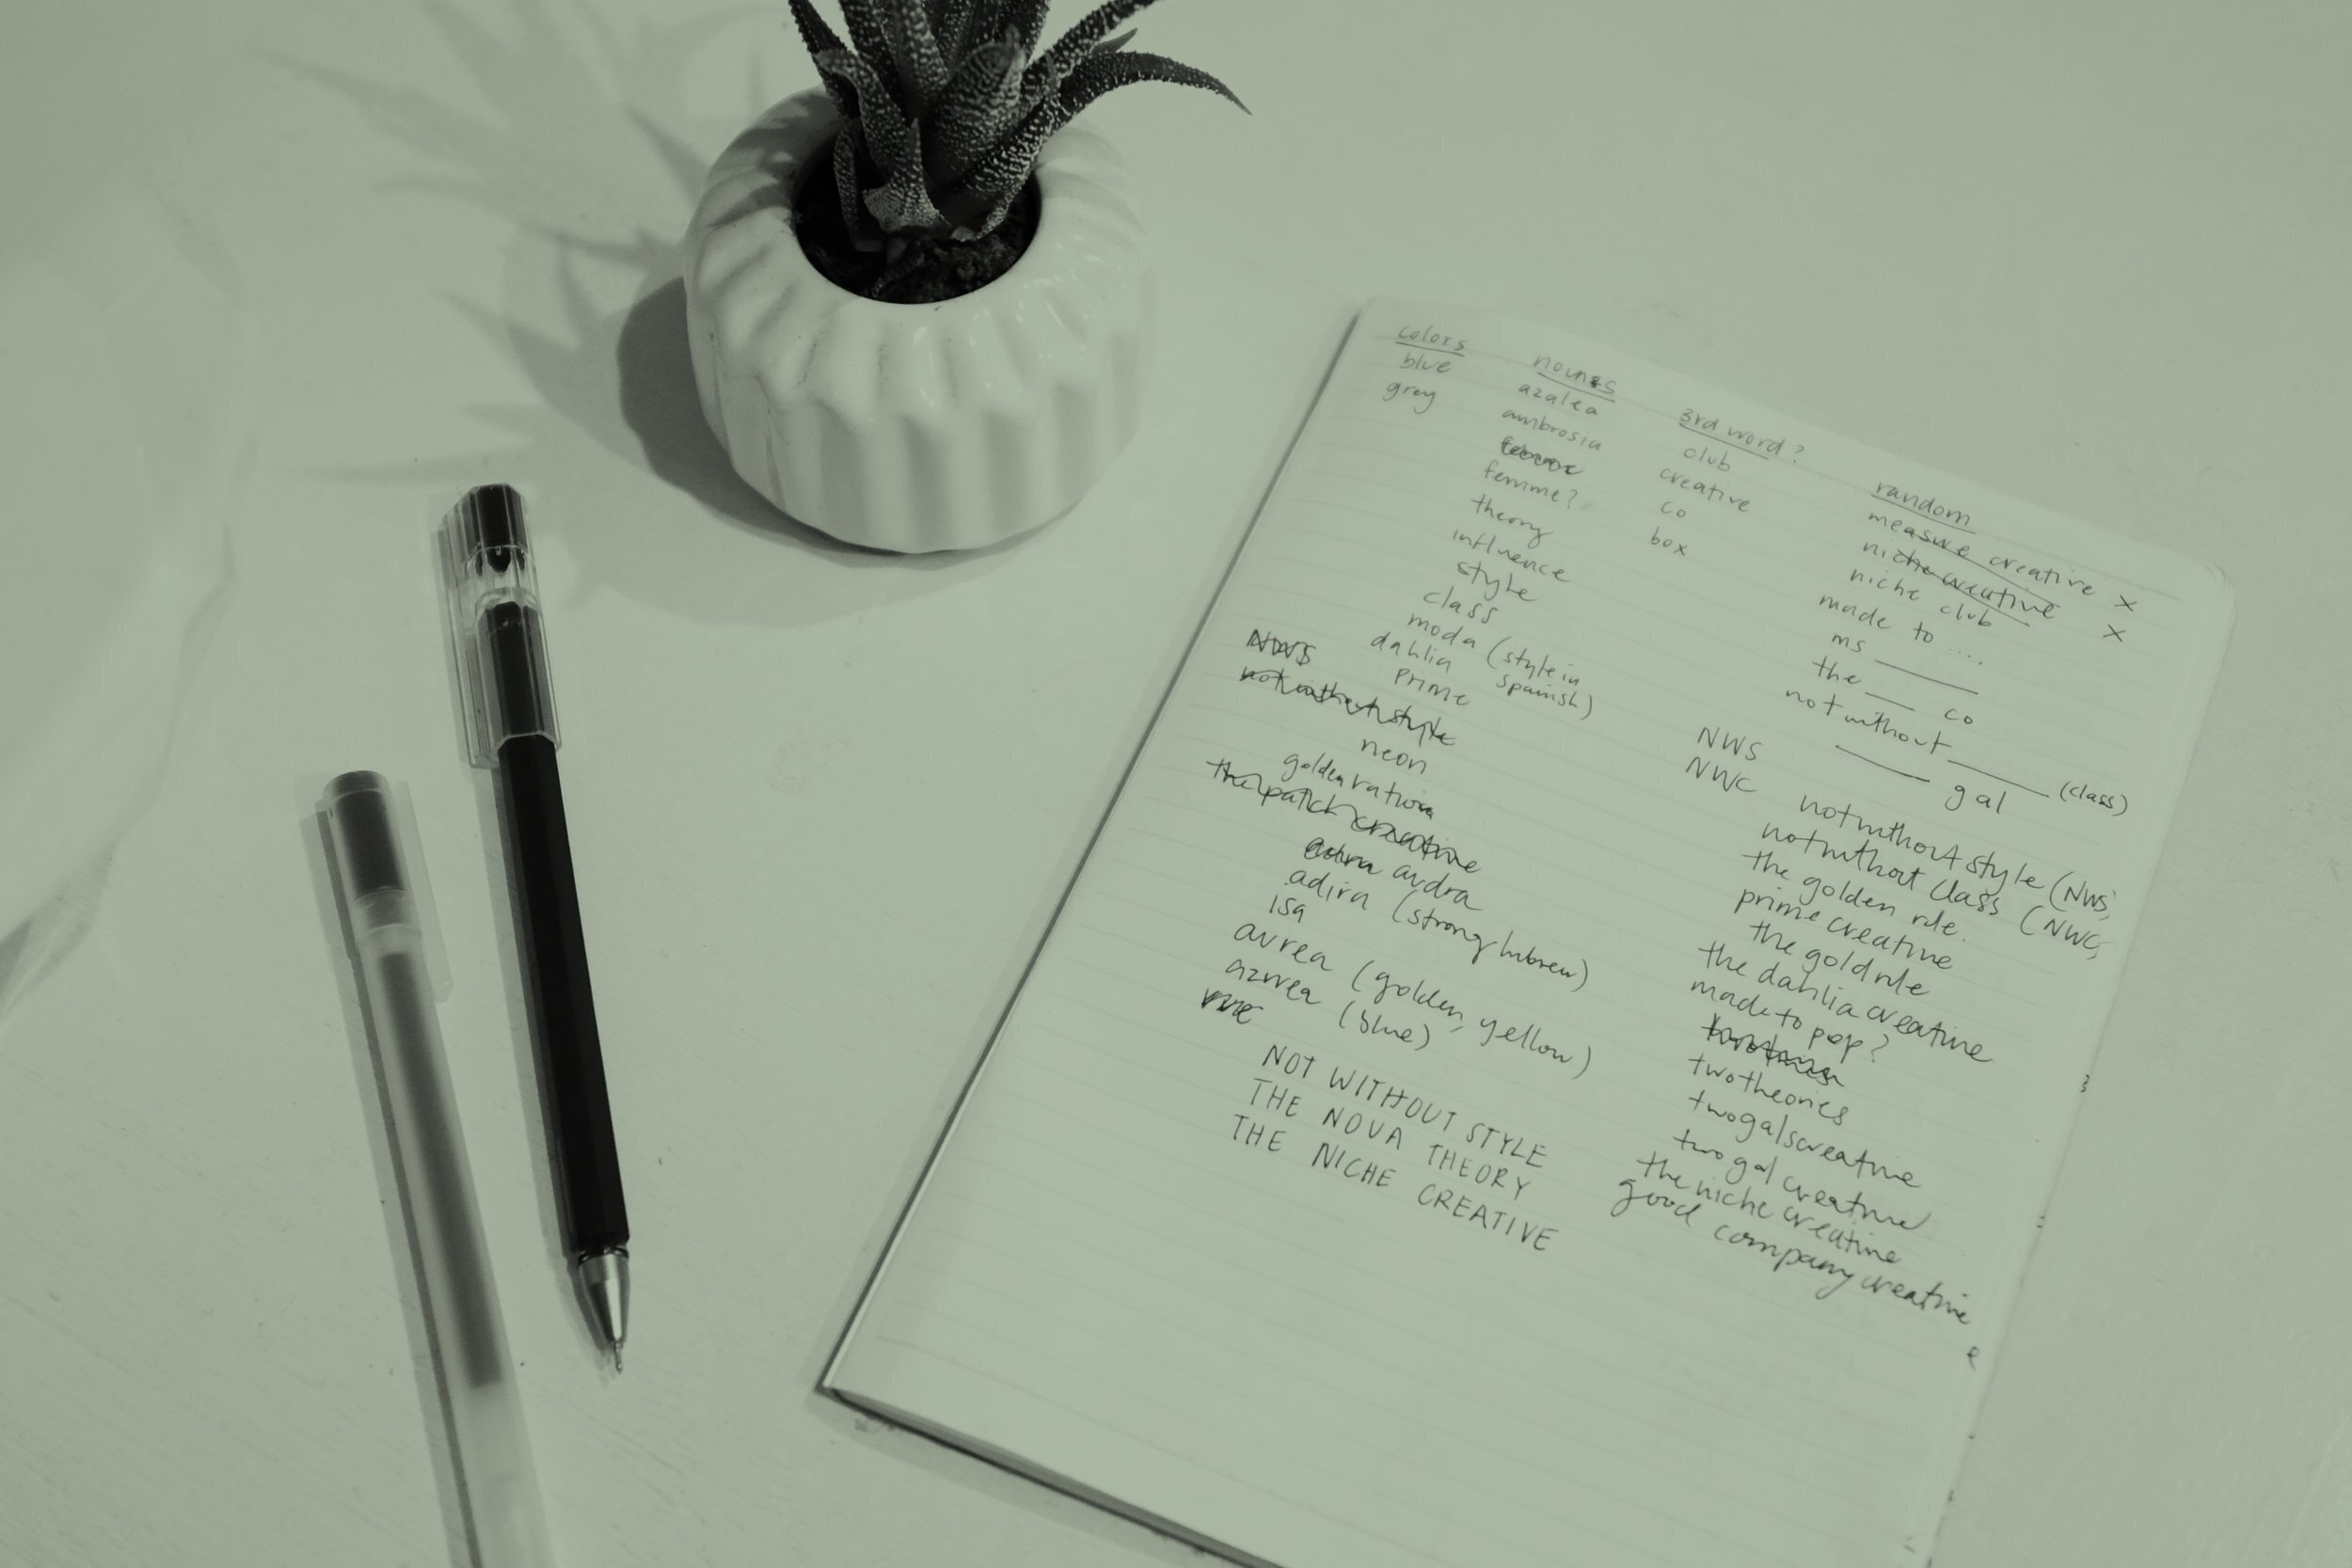 colors
blue
grey
nouns
azalea
ambrosia
femme?
theory
influence
style
class
moda (style in
spanish)
dahlia
prime
NWS
not without style
neon
golden ratio
the patch creative
audra
adira (strong hebrew)
isa
aurea (golden, yellow)
azurea (blue)
NOT WITHOUT STYLE
THE NOVA THEORY
THE NICHE CREATIVE
3rd word?
club
creative
co
box
random
measure creative x
niche creative x
niche club
made to ....
ms ____
the ___ co
not without ____ (class)
____ gal
NWS
NWC
notwithout style (NWS)
notwithout class (NWC)
the golden rule.
prime creative
the gold rule
the dahlia creative
made to pop?
twotheories
twogalscreative
two gal creative
the niche creative
good company creative